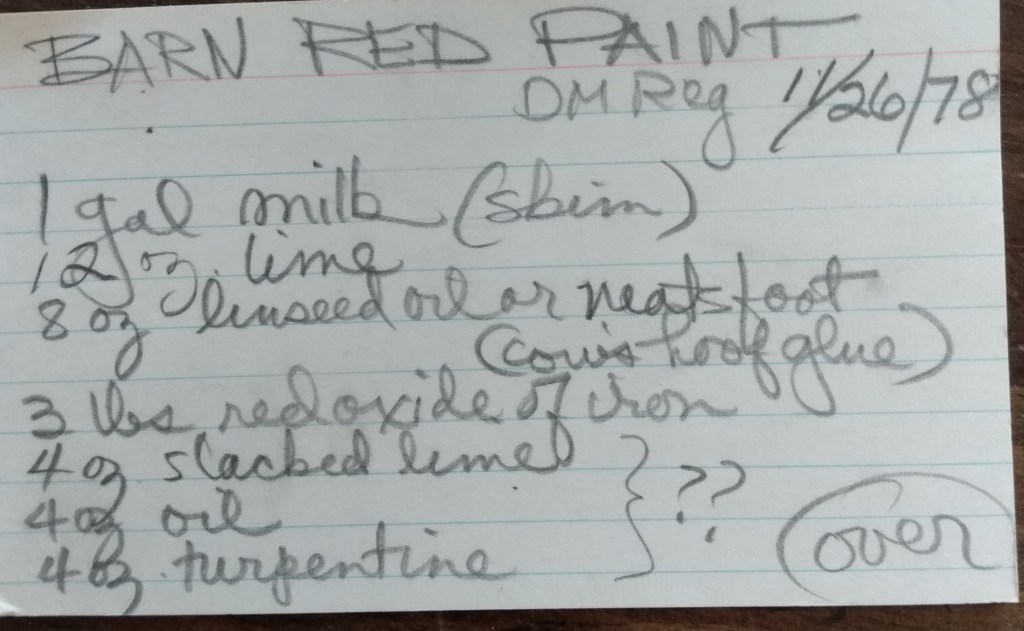 BARN RED PAINT
DM Reg 11/26/78
1 gal milk (skim)
12 oz. lime
8 oz linseed oil or neatsfoot
(cow's hoof glue)
3 lbs red oxide of iron
4 oz slacked lime
4 oz oil
4 oz. turpentine
} ??
over